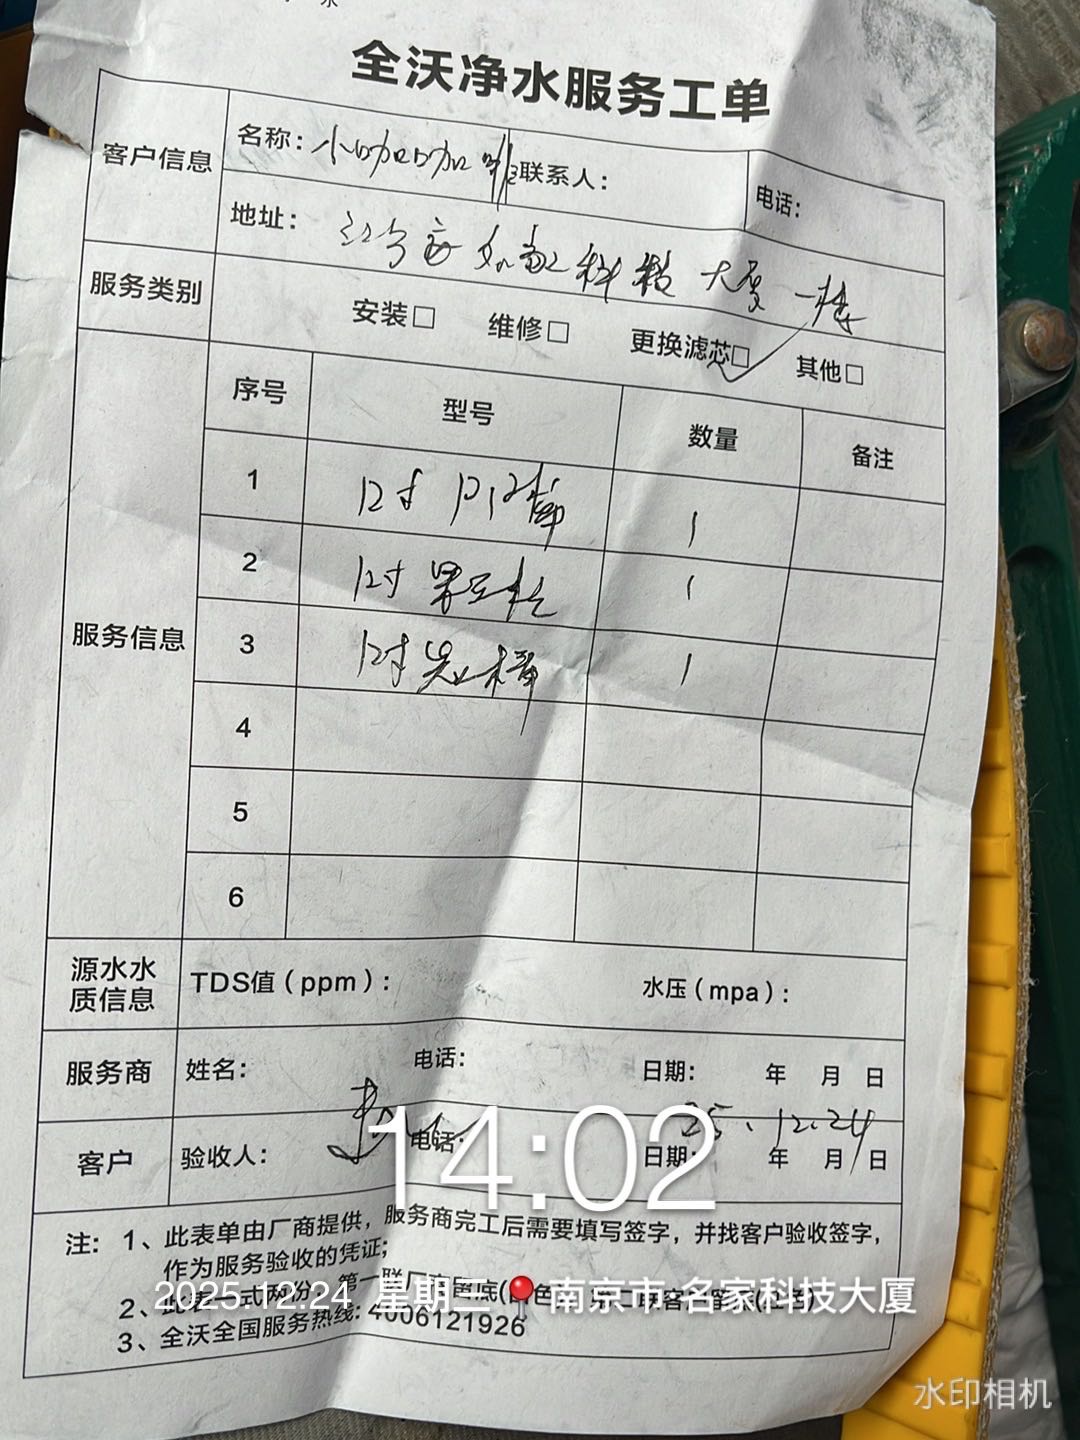 全沃净水服务工单
客户信息
名称：小咖咖啡 联系人： 电话：
地址：江宁区名家科技大厦一楼
服务类别 安装□ 维修□ 更换滤芯□✓ 其他□
服务信息
序号 型号 数量 备注
1 12寸PP棉 1
2 12寸 1
3 12寸 1
4
5
6
源水水质信息 TDS值（ppm）： 水压（mpa）：
服务商 姓名： 电话： 日期： 年 月 日
25.12.24
客户 验收人： 电话： 日期： 年 月 日
14:02
注： 1、此表单由厂商提供，服务商完工后需要填写签字，并找客户验收签字，
作为服务验收的凭证；
2、此表一式两份，第一联厂商留底
2025.12.24 星期三 南京市·名家科技大厦
3、全沃全国服务热线：4006121926
水印相机